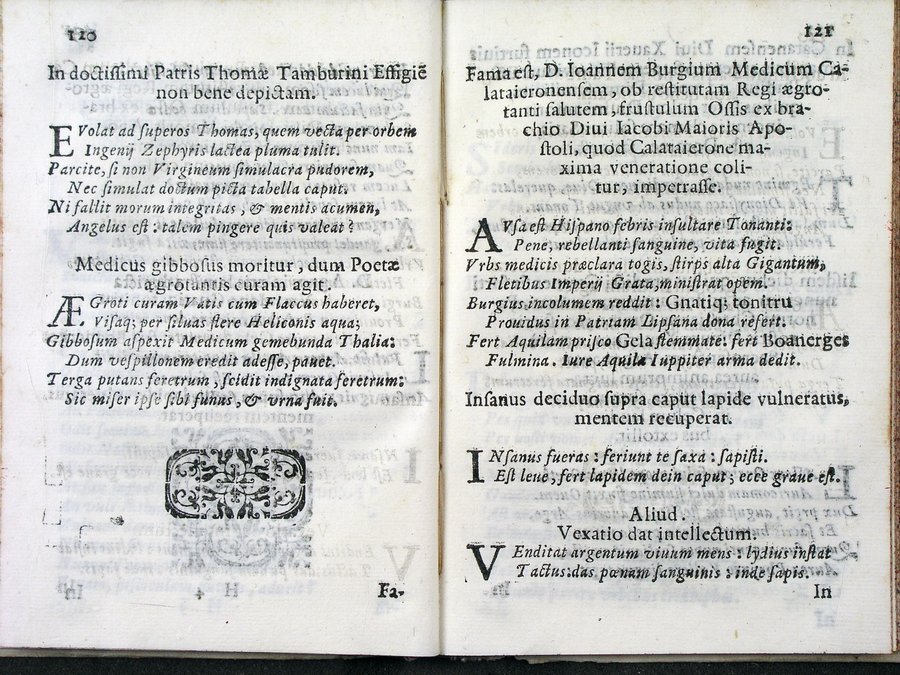 120
In doctissimi Patris Thomæ Tamburini Effigiē
non bene depictam.
EVolat ad superos Thomas, quem vecta per orbem
Ingenij Zephyris lactea pluma tulit.
Parcite, si non Virgineum simulacra pudorem,
Nec simulat doctum picta tabella caput.
Ni fallit morum integritas, & mentis acumen,
Angelus est: talem pingere quis valeat?
Medicus gibbosus moritur, dum Poetæ
ægrotantis curam agit.
ÆGroti curam Vatis cum Flaccus haberet,
Visaq; per siluas flere Heliconis aqua;
Gibbosum aspexit Medicum gemebunda Thalia:
Dum vespillonem credit adesse, pauet.
Terga putans feretrum, scidit indignata feretrum:
Sic miser ipse sibi funus, & vrna fuit.
H 4
Fa-
121
Fama est, D. Ioannem Burgium Medicum Ca-
lataieronensem, ob restitutam Regi ægro-
tanti salutem, frustulum Ossis ex bra-
chio Diui Iacobi Maioris Apo-
stoli, quod Calataierone ma-
xima veneratione coli-
tur, impetrasse.
AVsa est Hispano febris insultare Tonanti:
Pene, rebellanti sanguine, vita fugit.
Vrbs medicis præclara togis, stirps alta Gigantum,
Fletibus Imperij Grata, ministrat opem.
Burgius incolumem reddit: Gnatiq; tonitru
Prouidus in Patriam Lipsana dona refert.
Fert Aquilam prisco Gela stemmate: fert Boanerges
Fulmina. Iure Aquila Iuppiter arma dedit.
Insanus deciduo supra caput lapide vulneratus,
mentem recuperat.
INsanus fueras: feriunt te saxa: sapisti.
Est leue, fert lapidem dein caput; ecce graue est.
Aliud.
Vexatio dat intellectum.
VEnditat argentum viuum mens: lydius instat
Tactus: das pœnam sanguinis: inde sapis.
In